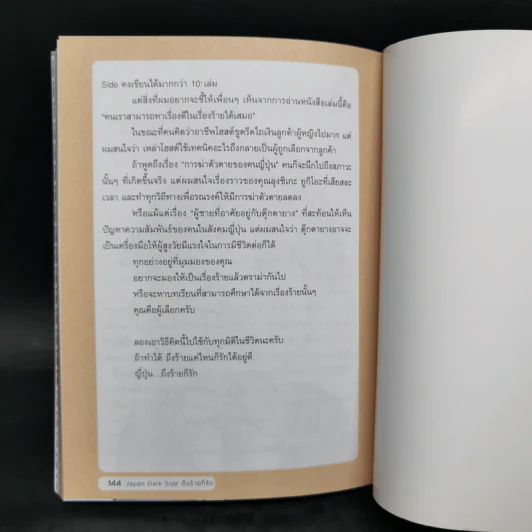 Side คงเขียนได้มากกว่า 10 เล่ม
แต่สิ่งที่ผมอยากจะชี้ให้เพื่อนๆ เห็นจากการอ่านหนังสือเล่มนี้คือ
"คนเราสามารถหาเรื่องดีในเรื่องร้ายได้เสมอ"
ในขณะที่คนคิดว่าอาชีพโฮสต์ขูดรีดไถเงินลูกค้าผู้หญิงไปมาก แต่
ผมสนใจว่า เหล่าโฮสต์ใช้เทคนิคอะไรถึงกลายเป็นผู้ถูกเลือกจากลูกค้า
ถ้าพูดถึงเรื่อง "การฆ่าตัวตายของคนญี่ปุ่น" คนก็จะนึกไปถึงสภาวะ
นั้นๆ ที่เกิดขึ้นจริง แต่ผมสนใจเรื่องราวของคุณลุงชิเกะ ยูกิโอะที่เสียสละ
เวลา และทำทุกวิถีทางเพื่อรณรงค์ให้มีการฆ่าตัวตายลดลง
หรือแม้แต่เรื่อง "ผู้ชายที่อาศัยอยู่กับตุ๊กตายาง" ที่สะท้อนให้เห็น
ปัญหาความสัมพันธ์ของคนในสังคมญี่ปุ่น แต่ผมสนใจว่า ตุ๊กตายางอาจจะ
เป็นเครื่องมือให้ผู้สูงวัยมีแรงใจในการมีชีวิตต่อก็ได้
ทุกอย่างอยู่ที่มุมมองของคุณ
อยากจะมองให้เป็นเรื่องร้ายแล้วดราม่ากันไป
หรือจะหาบทเรียนที่สามารถศึกษาได้จากเรื่องร้ายนั้นๆ
คุณคือผู้เลือกครับ
ลองเอาวิธีคิดนี้ไปใช้กับทุกมิติในชีวิตนะครับ
ถ้าทำได้ ถึงร้ายแค่ไหนก็รักได้อยู่ดี
ญี่ปุ่น...ถึงร้ายก็รัก
144 Japan Dark Side ถึงร้ายก็รัก